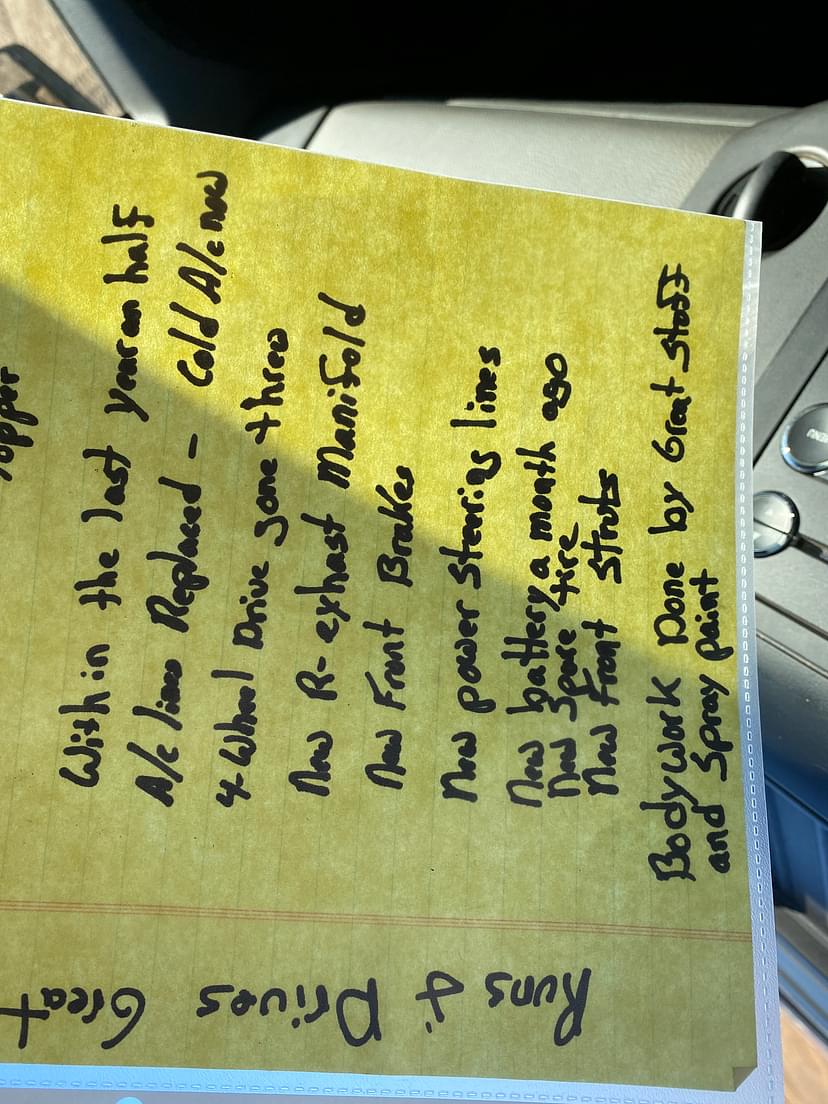 opper
Within the last year an half
A/c lines Replaced - Cold A/c now
4-Wheel Drive gone threw
New R-exhast Manifold
New Front Brakes
New power steering lines
New battery a month ago
New Spare tire
New Front Struts
Bodywork Done by Great Stuff
and Spray paint
Runs & Drives Great
MENU